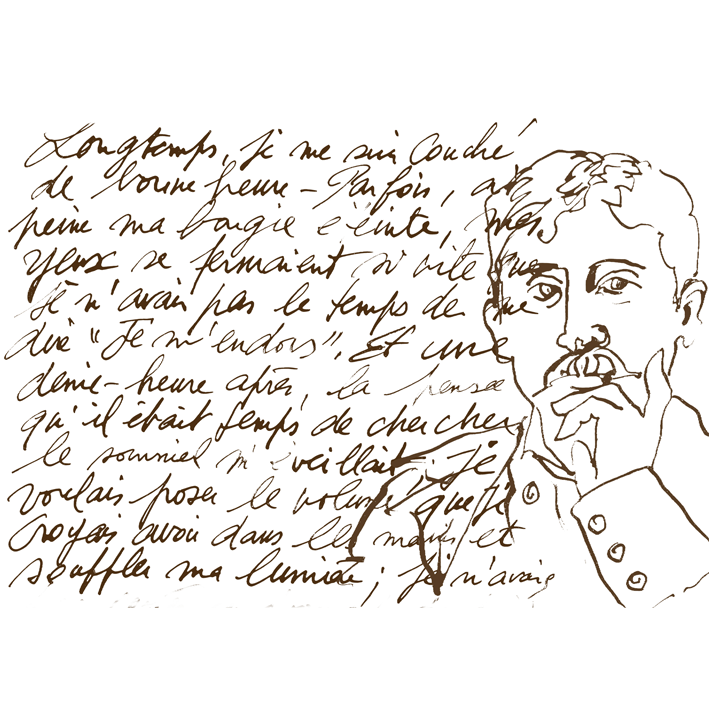 Longtemps, je me suis couché
de bonne heure - Parfois, à
peine ma bougie éteinte, mes
yeux se fermaient si vite que
je n'avais pas le temps de me
dire "Je m'endors". Et une
demie-heure après, la pensée
qu'il était temps de chercher
le sommeil m'éveillait, je
voulais poser le volume que je
croyais avoir dans les mains et
souffler ma lumière ; je n'avais